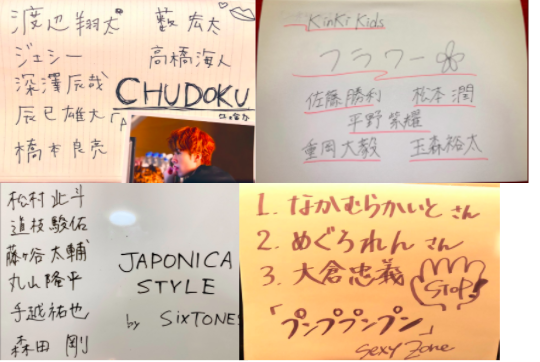 渡辺翔太
藪 宏太
ジェシー
髙橋海人
深澤辰哉
辰巳雄大
橋本良亮
CHUDOKU
KinKi Kids
フラワー
佐藤勝利
松本 潤
平野 紫耀
重岡大毅
玉森裕太
松村北斗
道枝駿佑
藤ヶ谷 太輔
丸山隆平
手越祐也
森田 剛
JAPONICA
STYLE
by SixTONES
1. なかむらかいと さん
2. めぐろれん さん
3. 大倉忠義
STOP!
「プンププンプン」
Sexy Zone